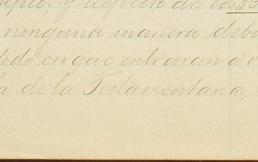 y despues de
ninguna manera debe
en que entraran a
de la Testamentaria,